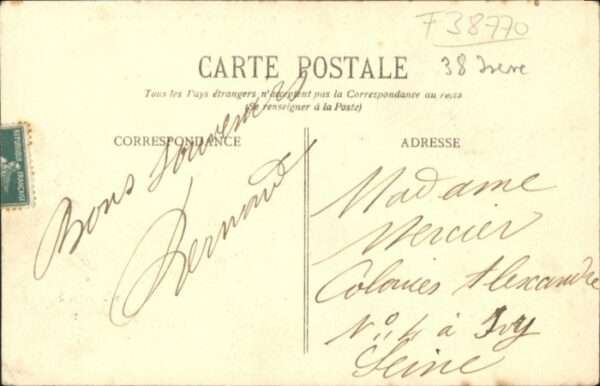 F38770
38 Isere
CARTE POSTALE
Tous les Pays étrangers n'acceptent pas la Correspondance au recto
(Se renseigner à la Poste)
CORRESPONDANCE
Bons Souvenirs
Bernard
ADRESSE
Madame
Mercier
Colonies Alexandre
No 4 à Ivy
Seine
REPUBLIQUE FRANÇAISE